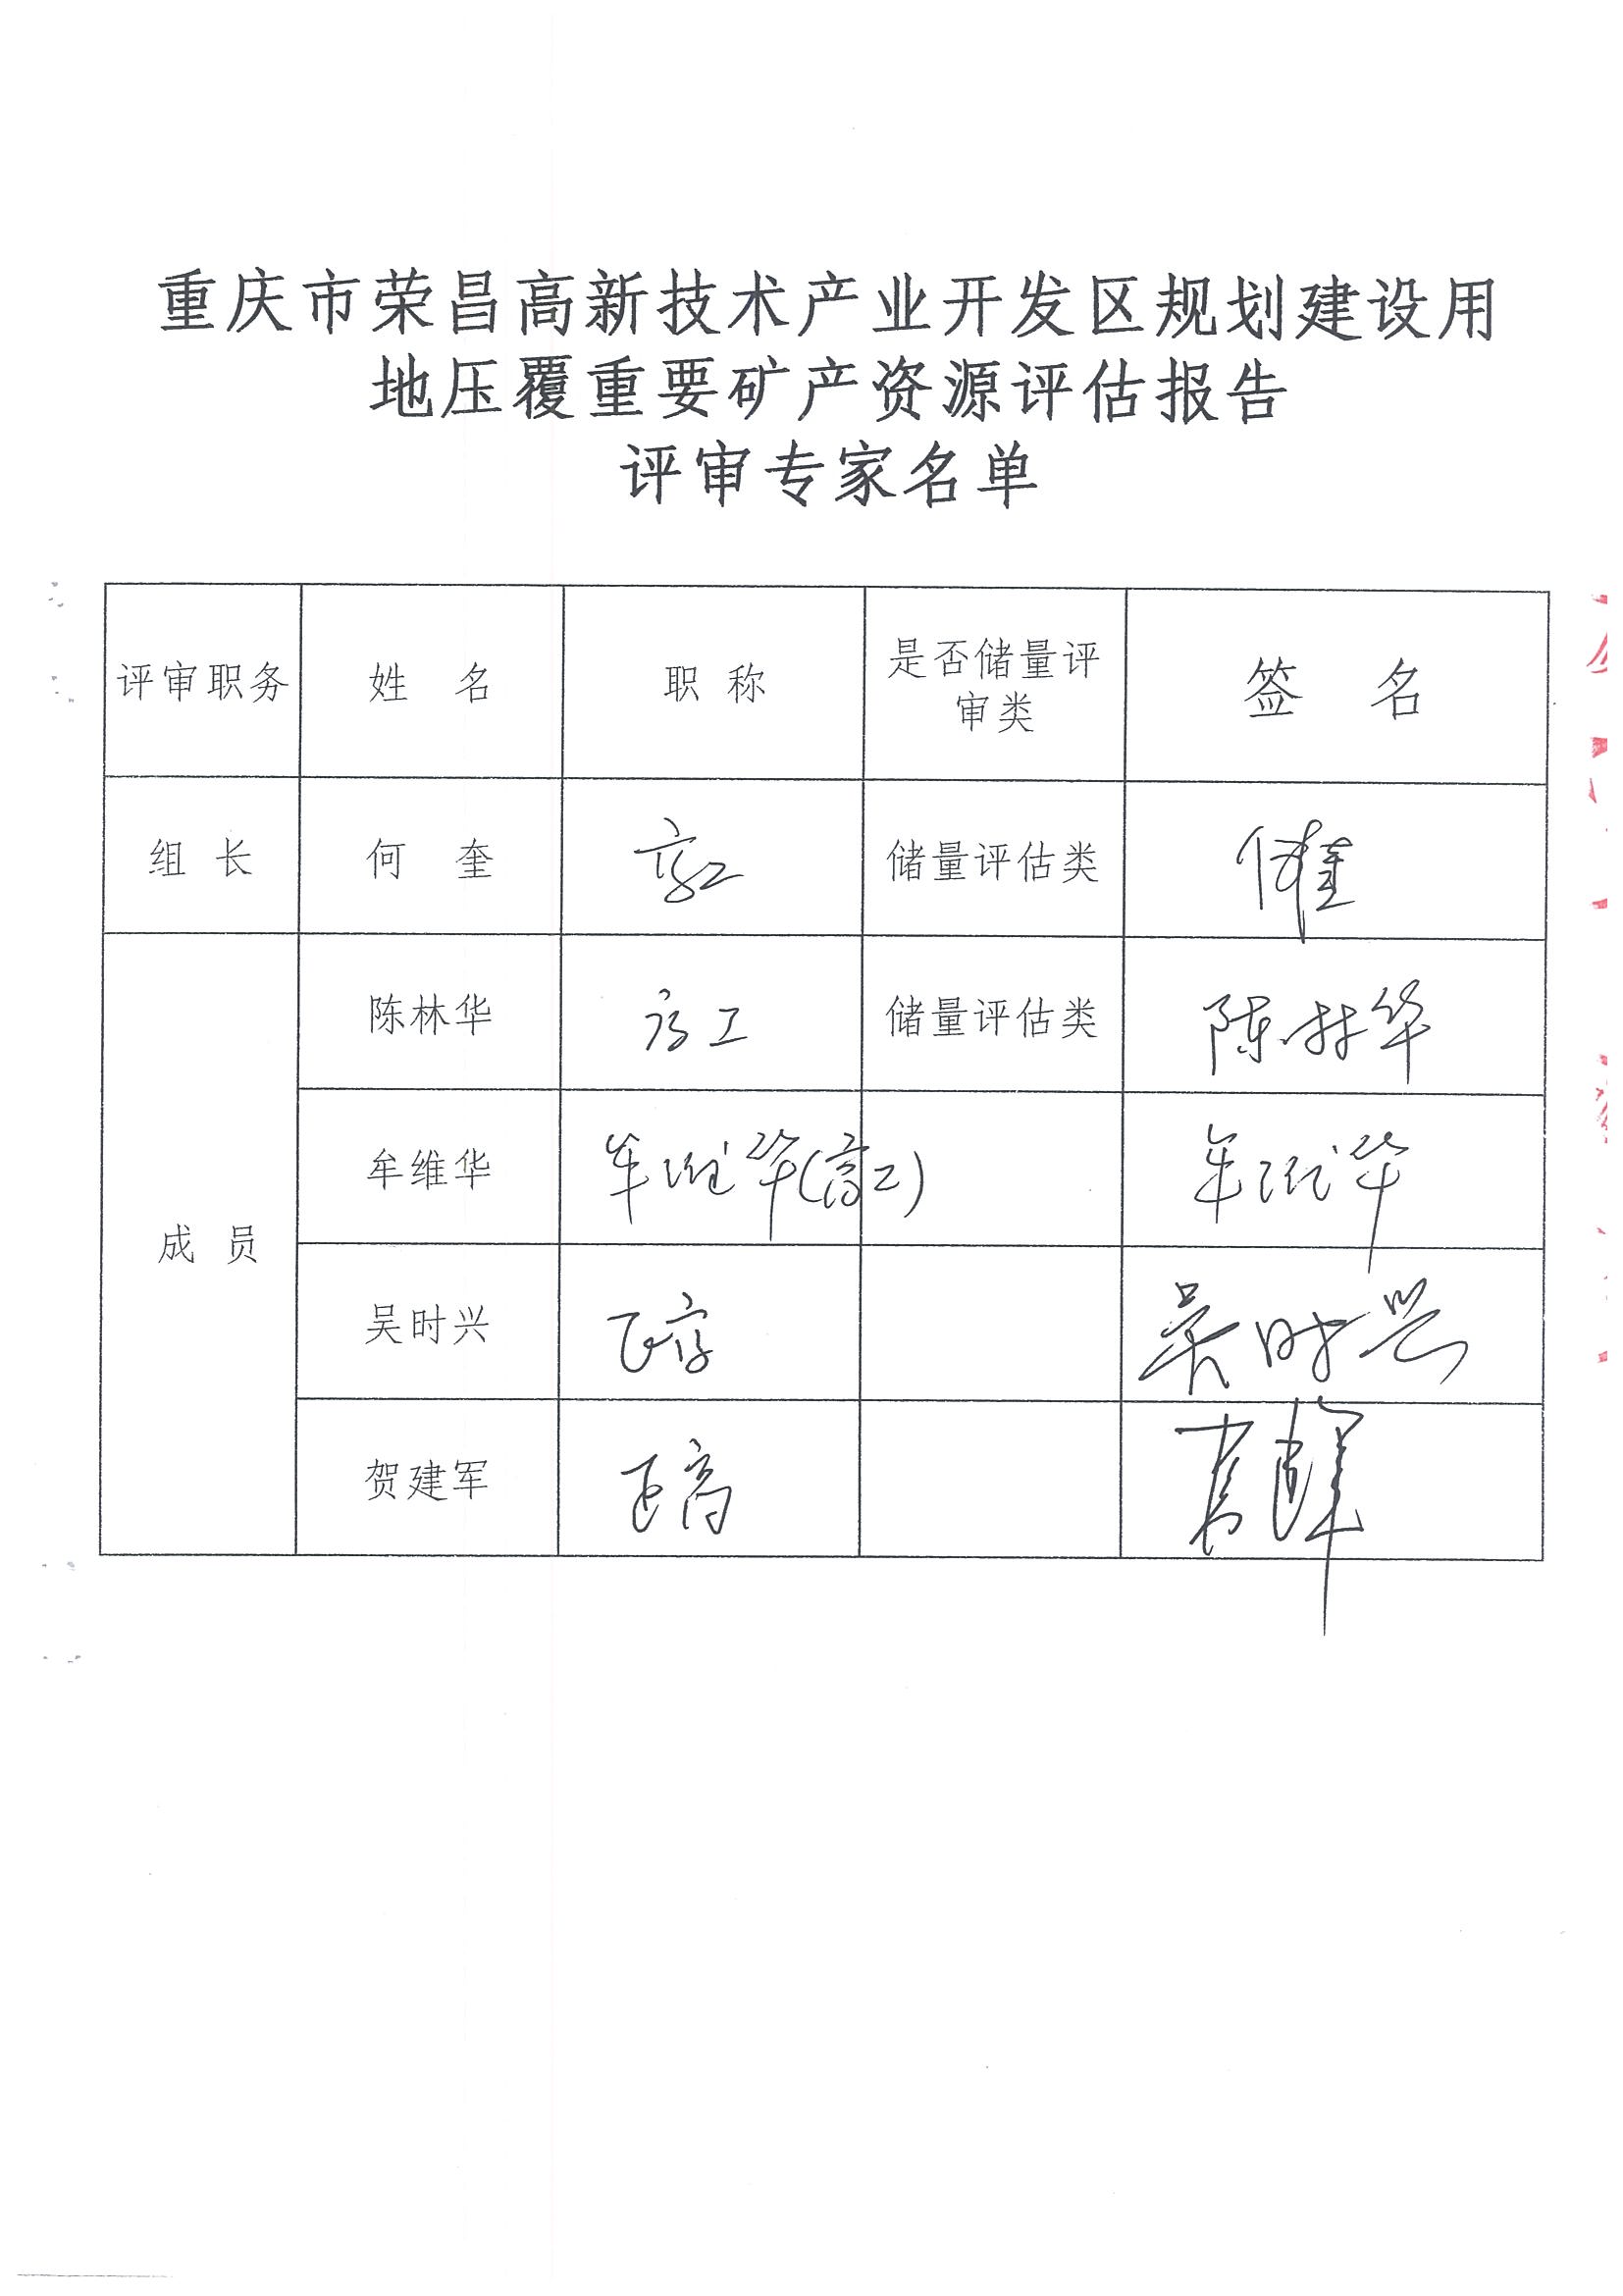 重庆市荣昌高新技术产业开发区规划建设用
地压覆重要矿产资源评估报告
评审专家名单
评审职务 姓名 职称 是否储量评审类 签名
组长 何奎 高工 储量评估类 何奎
成员
陈林华 高工 储量评估类 陈林华
牟维华 牟维华(高工) 牟维华
吴时兴 正高 吴时兴
贺建军 正高 贺建军